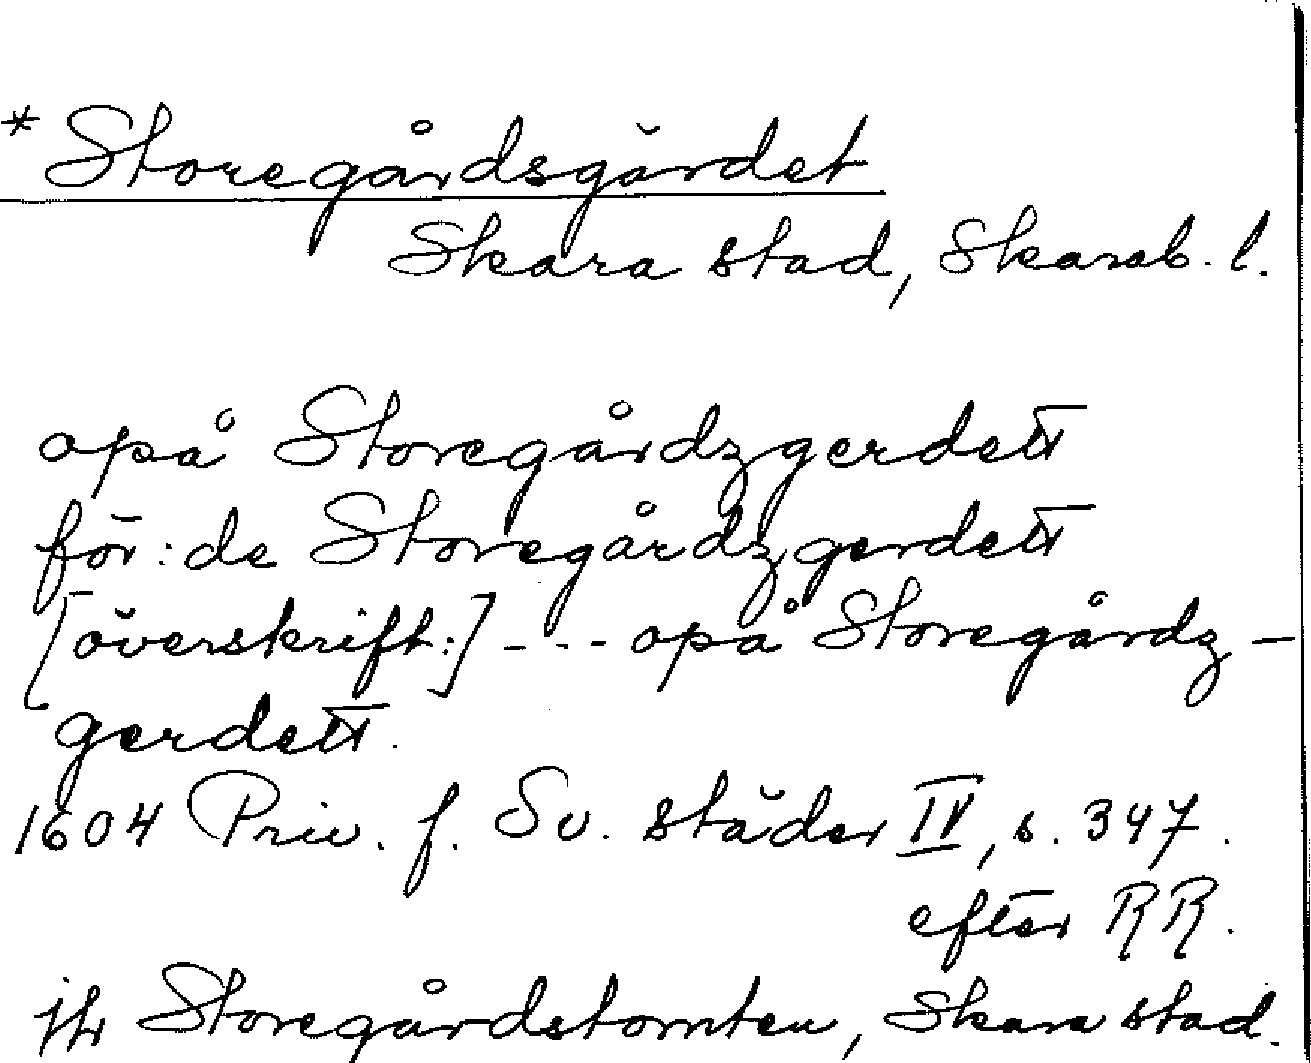 *Storegårdsgärdet
Skara stad, Skarab. l.
opå Storegårdzgerdett
för: de Storegårdzgerdett
[överskrift:] - - - opå Storegårdz-
gerdett.
1604 Priv. f. Sv. städer IV, s. 347.
efter RR.
jfr Storegårdstomten, Skara stad.